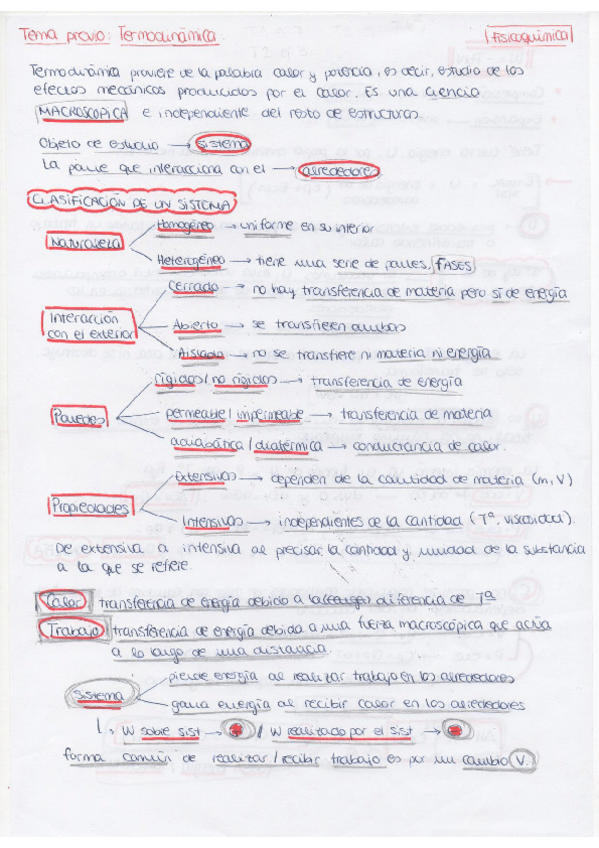 Tema previo: Termodinámica. Fisicoquímica
Termodinámica proviene de la palabra calor y potencia, es decir, estudio de los
efectos mecánicos producidos por el calor. Es una ciencia
MACROSCÓPICA e independiente del resto de estructuras.
Objeto de estudio → sistema
La parte que interacciona con el → alrededores
CLASIFICACIÓN DE UN SISTEMA
Naturaleza
Homogéneo → uniforme en su interior
Heterogéneo → tiene una serie de partes, FASES
Interacción con el exterior
Cerrado → no hay transferencia de materia pero sí de energía
Abierto → se transfieren ambas
Aislado → no se transfiere ni materia ni energía
Paredes
rígidas/no rígidas → transferencia de energía
permeable/impermeable → transferencia de materia
adiabática/diatérmica → conductancia de calor.
Propiedades
Extensivas → dependen de la cantidad de materia (m, V)
Intensivas → independientes de la cantidad (Tª, viscosidad).
De extensiva a intensiva al precisar la cantidad y unidad de la substancia
a la que se refiere.
Calor transferencia de energía debido a la diferencia de Tª
Trabajo transferencia de energía debida a una fuerza macroscópica que actúa
a lo largo de una distancia.
Sistema
pierde energía al realizar trabajo en los alrededores
gana energía al recibir calor en los alrededores
W sobre sist → / W realizado por el sist →
forma común de realizar/recibir trabajo es por un cambio V.